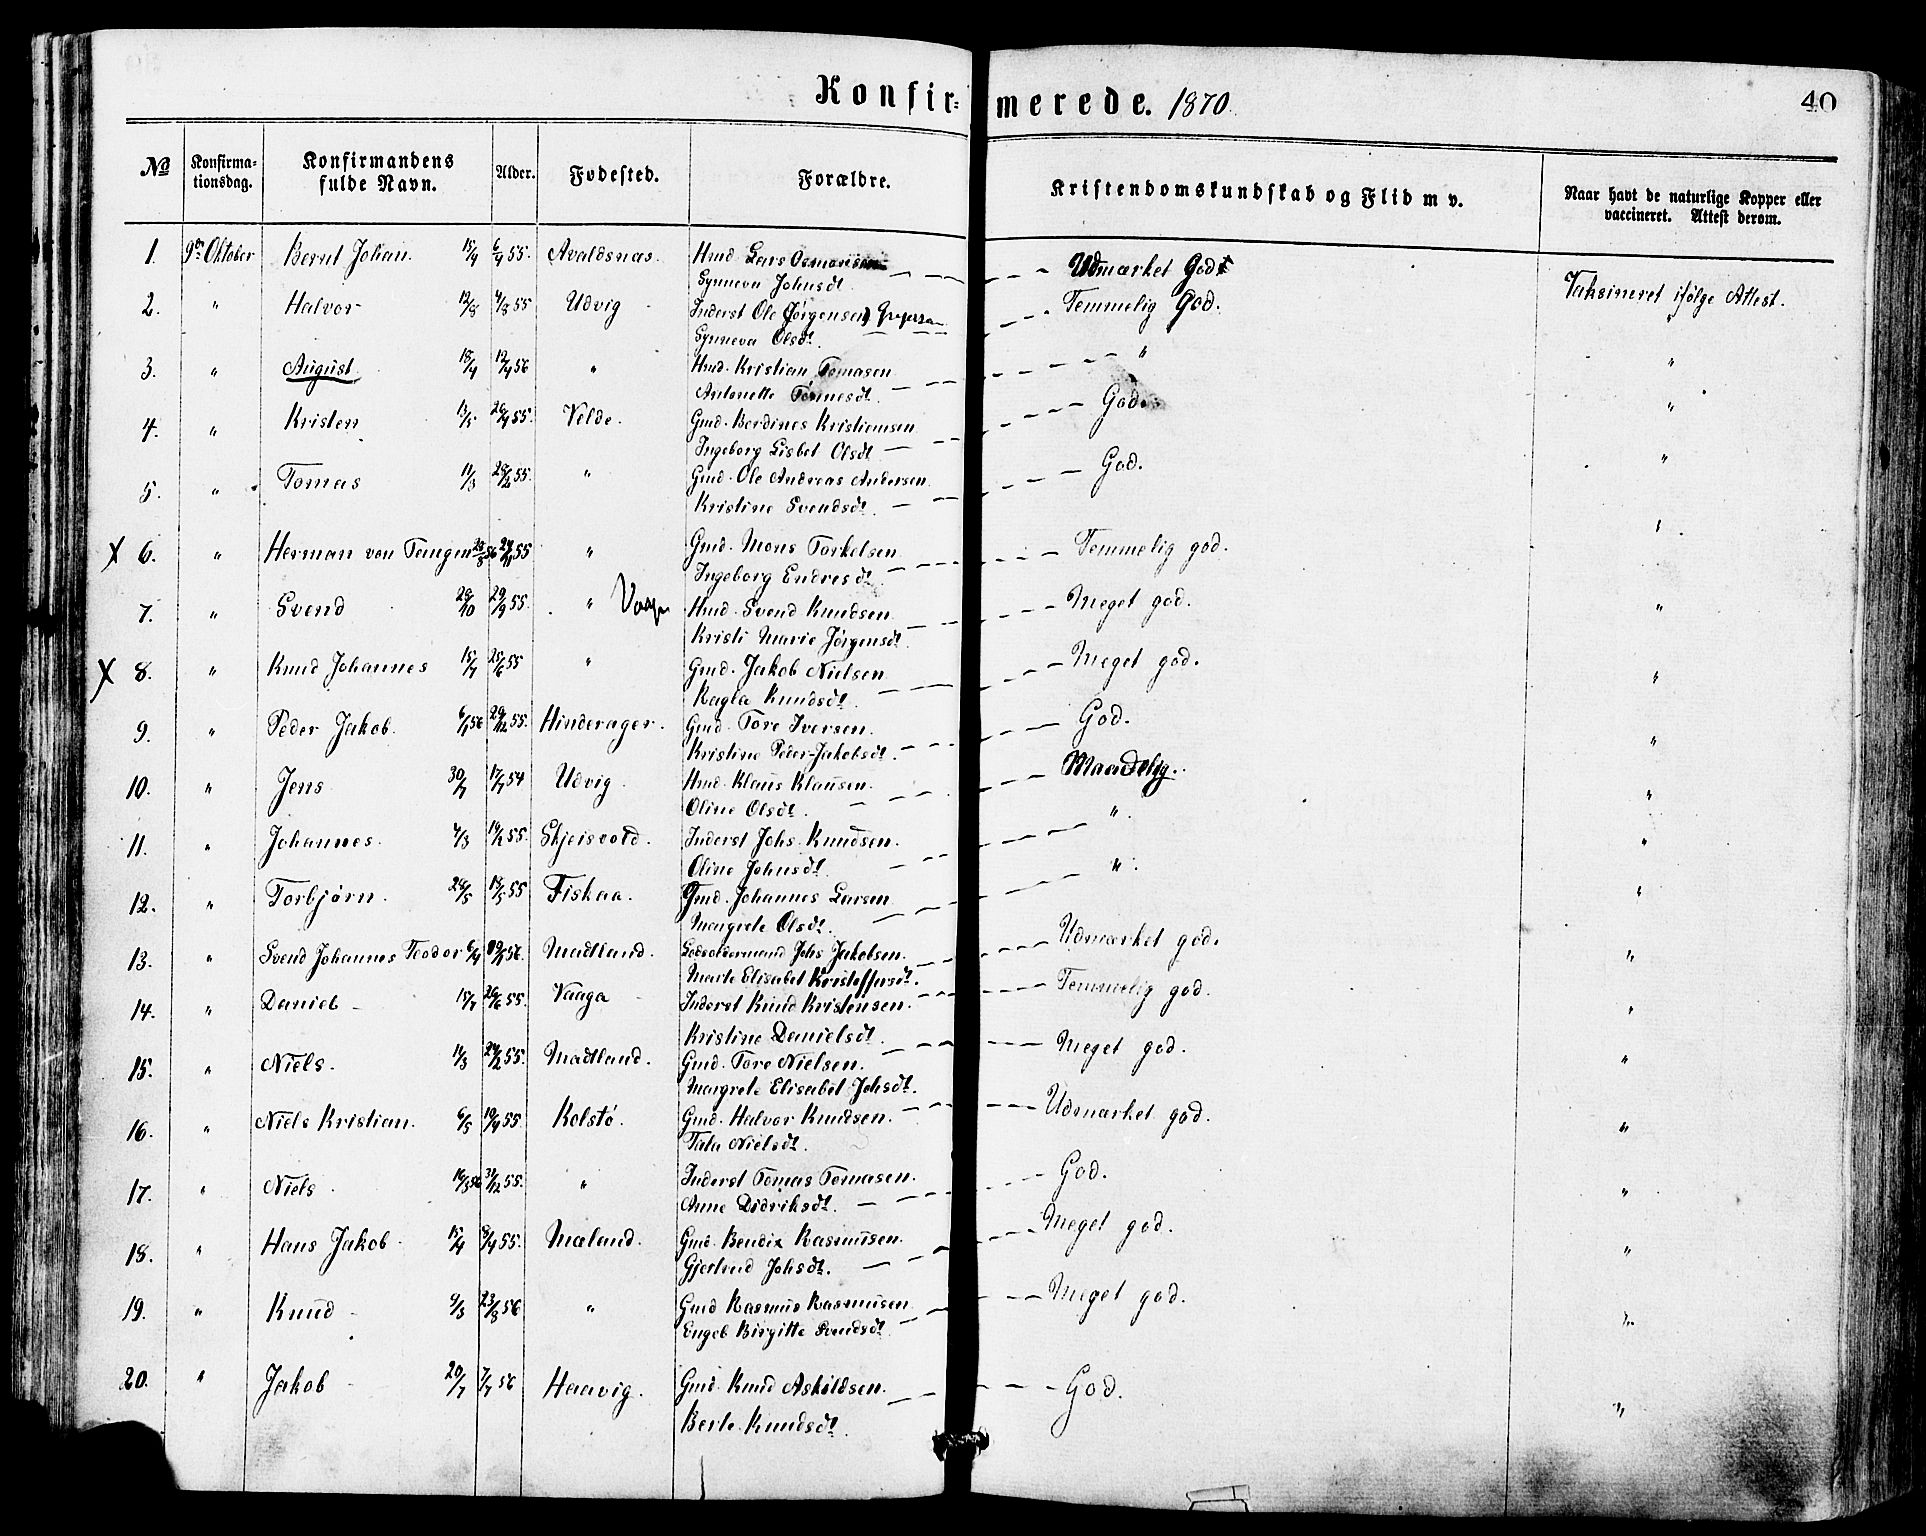 Konfirmerede. 1870.
40
No
Konfirma-
tionsdag.
Konfirmandens
fulde Navn.
Alder.
Fodested.
Forældre.
Kristendomskundskab og Flid m v.
Naar havt de naturlige Kopper eller
vaccineret. Attest derom.
1. 9de Oktober Bernt Johan. 15/4 6/4 55. Avaldsnas. Hmd. Lars Osmonsen Udmærket God
Synneva Johnsdt. Vaksineret ifølge Attest.
2. " Halvor 12/8 4/8 55 Udvig Inderst Ole Jørgensen Temmelig God. "
Synneva Olsdt.
3. " August. 18/4 12/4 56 " Hmd. Kristian Tomasen " "
Antonette Tonnesdt.
4. " Kristen 13/5 26/4 55. Velde. Gmd. Berdines Kristiansen God. "
Ingeborg Lisbet Olsdt
5. " Tomas 11/3 28/2 55. " Gmd. Ole Andreas Andersen. God. "
Kristine Svendsdt.
X 6. " Herman von Tangen 55 " Gmd. Mons Torkelsen Temmelig god. "
Ingeborg Endresdt
7. " Svend 29/10 29/9 55. " Vaage Hmd. Svend Knudsen Meget god. "
Kristi Marie Jørgensdt
X 8. " Knud Johannes 15/7 25/6 55 " Gmd. Jakob Nielsen Meget god. "
Ragla Knudsdt.
9. " Peder Jakob. 6/1 56 29/12 55. Hinderager. Gmd. Tore Iversen. God. "
Kristine Peder-Jakobsdt.
10. " Jens 30/7 17/7 54 Udvig. Hmd. Klaus Klausen. Maadelig. "
Oline Olsdt.
11. " Johannes. 4/3 19/2 55. Skjeisvold. Inderst Johs. Knudsen. " "
Oline Johnsdt.
12. " Torbjørn. 28/5 18/5 55 Fiskaa. Gmd. Johannes Larsen " "
Margrete Olsdt.
13. " Svend Johannes Teodor 6/4 56. Madland. Lodsoldermand Johs Jakobsen. Udmærket god. "
Marte Elisabet Kristoffersdt.
14. " Daniel 15/7 26/6 55. Vaaga Inderst Knud Kristensen. Temmelig god. "
Kristine Danielsdt.
15. " Niels. 11/3 24/2 55. Madland. Gmd. Tore Nielsen. Meget god. "
Margrete Elisabet Johsdt.
16. " Niels Kristian. 6/5 19/4 55. Kolstø. Gmd. Halvor Knudsen. Udmærket god. "
Tala Nielsdt.
17. " Niels 16/3 56 31/12 55. " Inderst Tomas Tomasen. God. "
Anne Didriksdt.
18. " Hans Jakob 15/4 8/4 55. Mæland. Gmd. Bendix Rasmusen. Meget god. "
Gjertrud Johsdt.
19. " Knud 9/3 23/3 56 " Gmd Rasmus Rasmusen Meget god. "
Engeb Birgitte Svendsdt
20. " Jakob 20/7 7/7 56 Haavig. Gmd. Knud Askildsen. God. "
Berte Knudsdt.